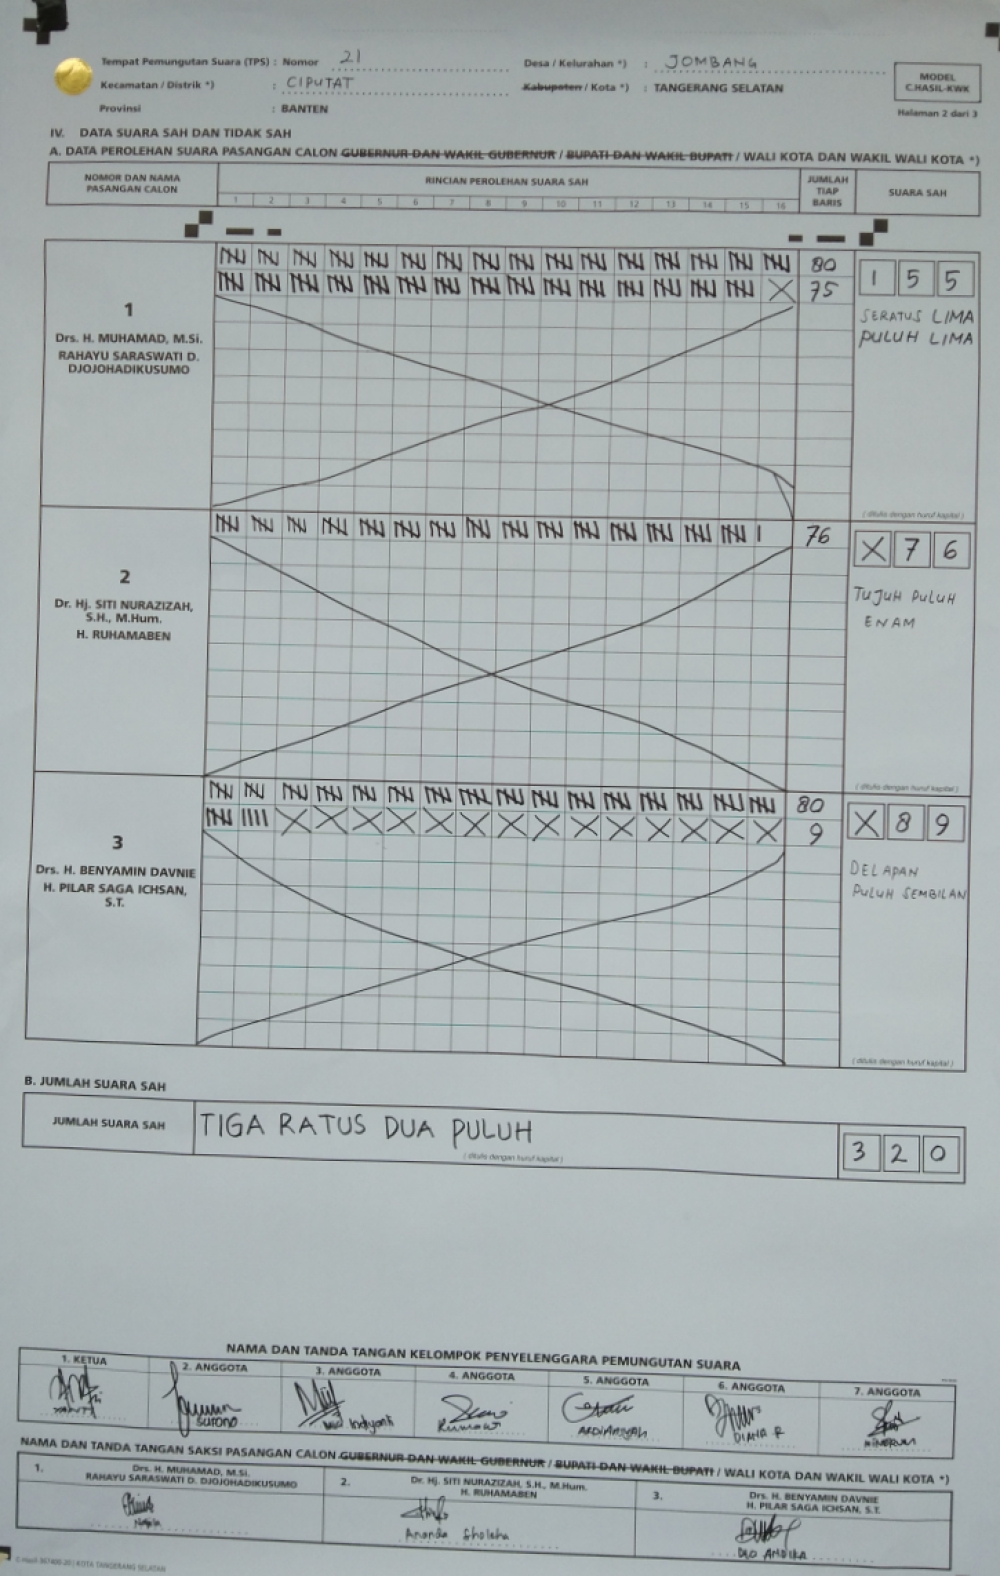 Tempat Pemungutan Suara (TPS) : Nomor 21 Desa / Kelurahan *) : JOMBANG
Kecamatan / Distrik *) : CIPUTAT Kabupaten / Kota *) : TANGERANG SELATAN
Provinsi : BANTEN
MODEL
C.HASIL-KWK
Halaman 2 dari 3
IV. DATA SUARA SAH DAN TIDAK SAH
A. DATA PEROLEHAN SUARA PASANGAN CALON GUBERNUR DAN WAKIL GUBERNUR / BUPATI DAN WAKIL BUPATI / WALI KOTA DAN WAKIL WALI KOTA *)
NOMOR DAN NAMA
PASANGAN CALON
RINCIAN PEROLEHAN SUARA SAH
1 2 3 4 5 6 7 8 9 10 11 12 13 14 15 16
JUMLAH
TIAP
BARIS
SUARA SAH
1
Drs. H. MUHAMAD, M.Si.
RAHAYU SARASWATI D.
DJOJOHADIKUSUMO
80
75
1 5 5
SERATUS LIMA
PULUH LIMA
( ditulis dengan huruf kapital )
2
Dr. Hj. SITI NURAZIZAH,
S.H., M.Hum.
H. RUHAMABEN
76
X 7 6
TUJUH PULUH
ENAM
( ditulis dengan huruf kapital )
3
Drs. H. BENYAMIN DAVNIE
H. PILAR SAGA ICHSAN,
S.T.
80
9
X 8 9
DELAPAN
PULUH SEMBILAN
( ditulis dengan huruf kapital )
B. JUMLAH SUARA SAH
JUMLAH SUARA SAH
TIGA RATUS DUA PULUH
( ditulis dengan huruf kapital )
3 2 0
NAMA DAN TANDA TANGAN KELOMPOK PENYELENGGARA PEMUNGUTAN SUARA
1. KETUA 2. ANGGOTA 3. ANGGOTA 4. ANGGOTA 5. ANGGOTA 6. ANGGOTA 7. ANGGOTA
SURONO Indyanti ARDIANSYAH DIANA R
NAMA DAN TANDA TANGAN SAKSI PASANGAN CALON GUBERNUR DAN WAKIL GUBERNUR / BUPATI DAN WAKIL BUPATI / WALI KOTA DAN WAKIL WALI KOTA *)
1. Drs. H. MUHAMAD, M.Si.
RAHAYU SARASWATI D. DJOJOHADIKUSUMO
2. Dr. Hj. SITI NURAZIZAH, S.H., M.Hum.
H. RUHAMABEN
Ananda Sholeha
3. Drs. H. BENYAMIN DAVNIE
H. PILAR SAGA ICHSAN, S.T.
DIO ANDIKA
KOTA TANGERANG SELATAN